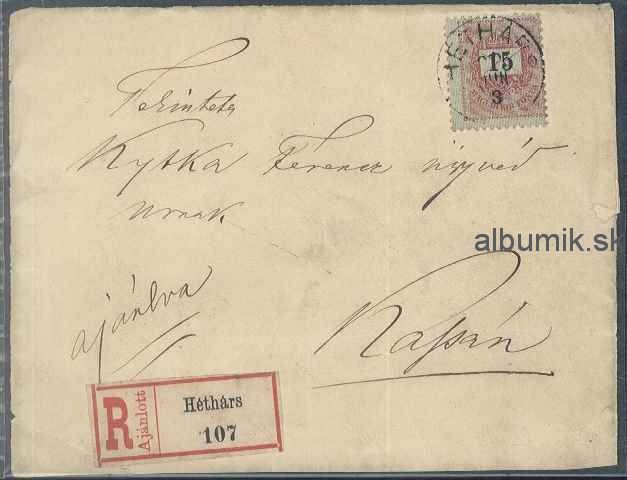 HÉTHÁRS
15
3
Tekintetes
Kytka Ferencz ügyvéd
urnak
albumik.sk
ajánlva
Kassán
R Ajánlott
Héthárs
107